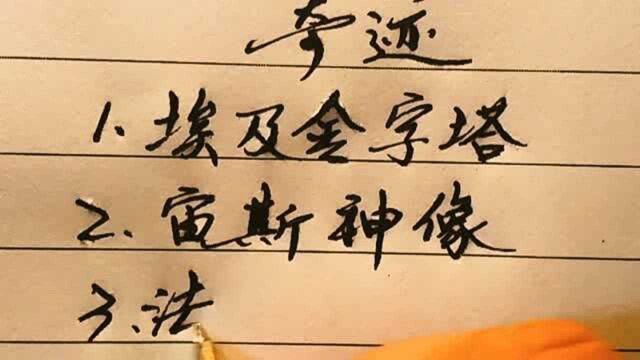 奇迹
1.埃及金字塔
2.宙斯神像
3.法